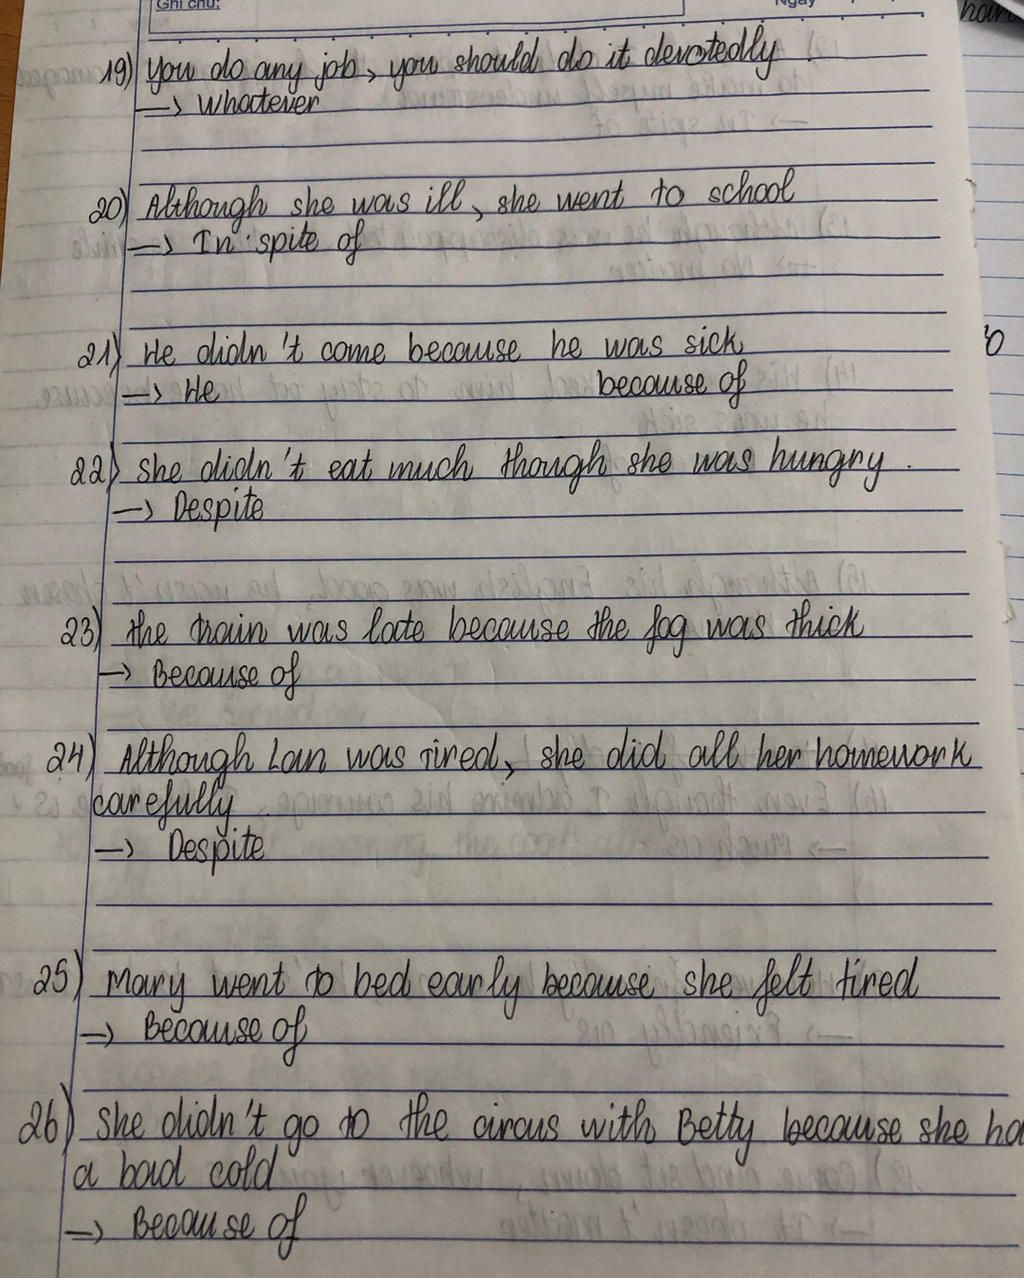 Ghi chú:
Ngày
19) You do any job, you should do it devotedly
→ Whatever
20) Although she was ill, she went to school
→ In spite of
21) He didn't come because he was sick
→ He because of
22) She didn't eat much though she was hungry.
→ Despite
23) The train was late because the fog was thick
→ Because of
24) Although Lan was tired, she did all her homework
carefully
→ Despite
25) Mary went to bed early because she felt tired
→ Because of
26) She didn't go to the circus with Betty because she ha
a bad cold
→ Because of